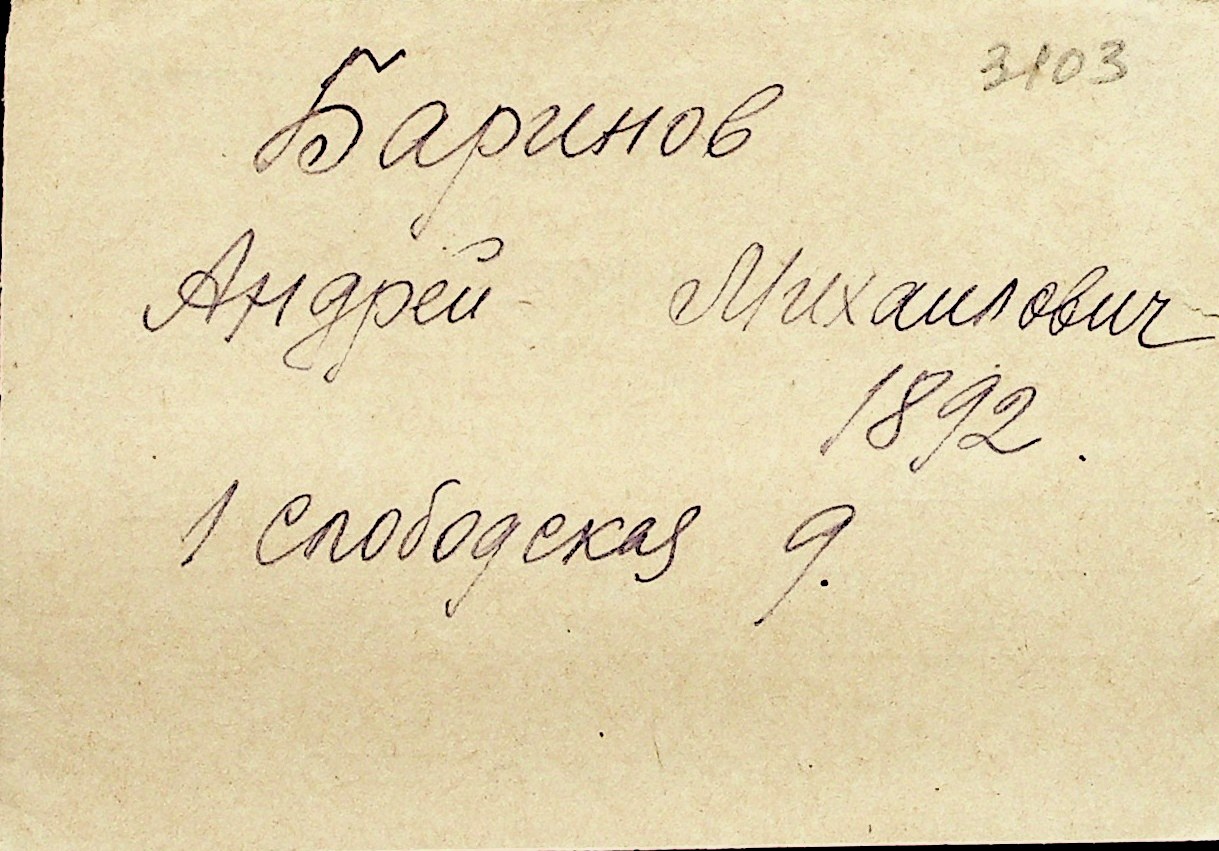 3103
Баринов
Андрей Михаилович
1892.
1 Слободская 9.